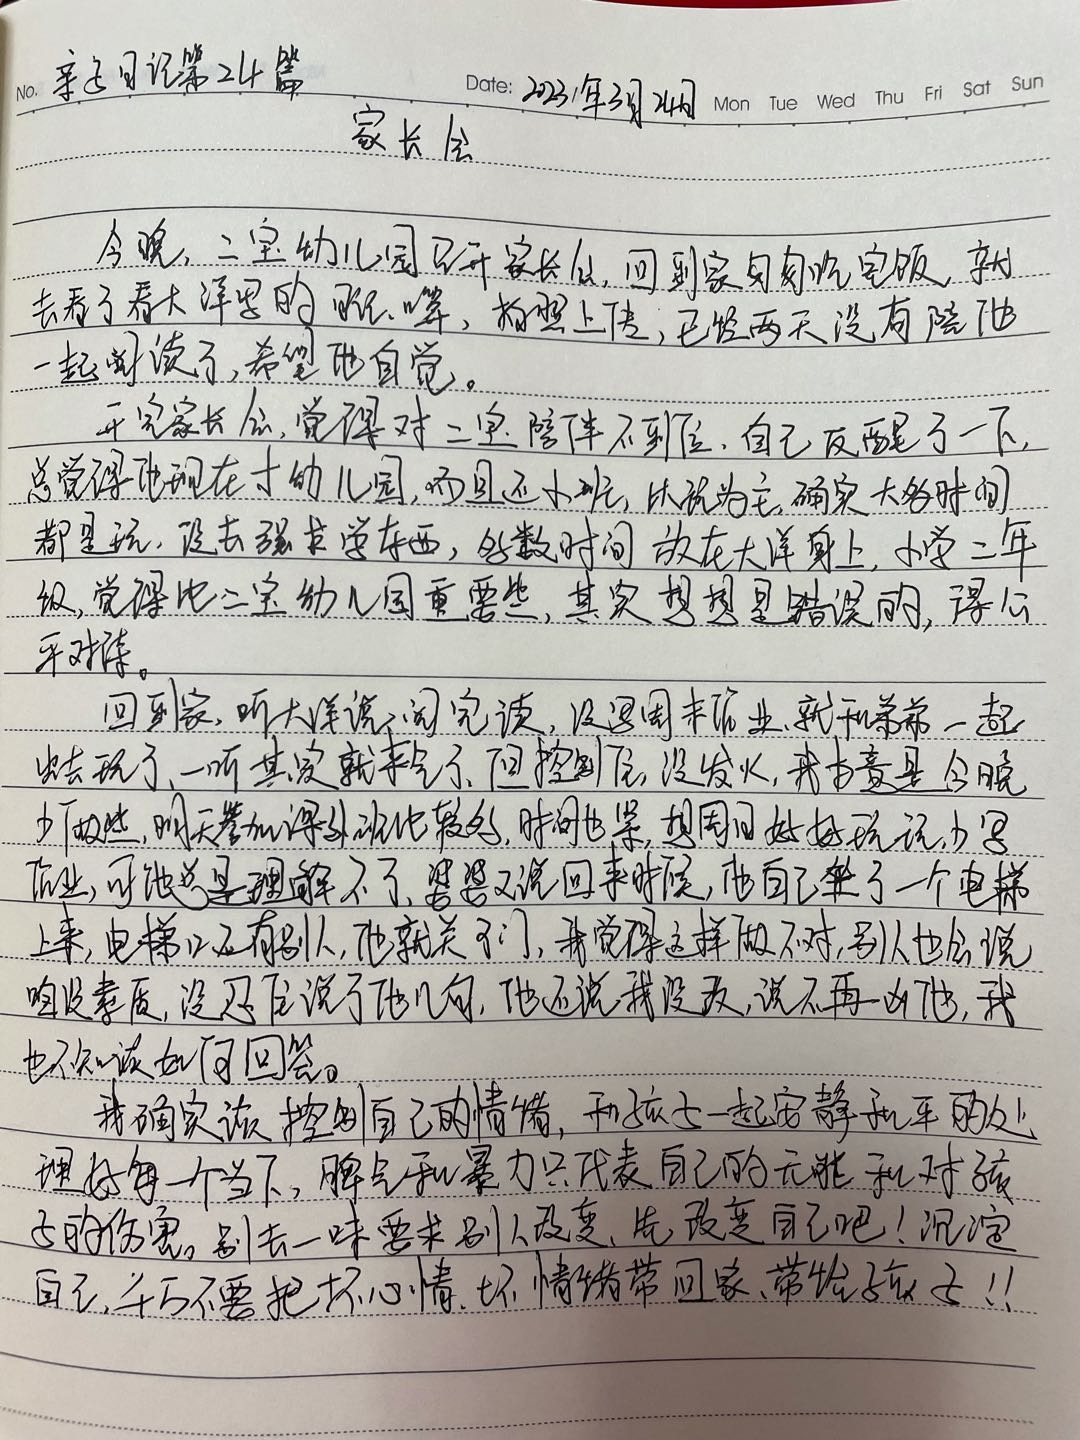 No. 亲子日记第24篇 Date: 2023年3月24日 Mon Tue Wed Thu Fri Sat Sun
家长会
今晚,二宝幼儿园召开家长会,回到家匆匆吃完饭,就
去看了看大洋写的口算,拍照上传,已经两天没有陪他
一起阅读了,希望他自觉。
开完家长会,觉得对二宝陪伴不到位,自己反醒了一下,
总觉得他现在才幼儿园,而且还小班,以玩为主,确实大多时间
都是玩,没去强求学东西,多数时间放在大洋身上,小学二年
级,觉得比二宝幼儿园重要些,其实想想是错误的,得公
平对待。
回到家,听大洋说,阅完读,没写周末作业,就和弟弟一起
出去玩了,一听其实就来气了,但控制住,没发火,我本意是今晚
少做些,明天参加课外班比较多,时间也紧,想周日好好玩玩,少写
作业,可他总是理解不了,婆婆又说回来时候,他自己坐了一个电梯
上来,电梯口还有别人,他就关了门,我觉得这样做不对,别人也会说
咱没素质,没忍住说了他几句,他还说我没改,说不再凶他,我
也不知该如何回答。
我确实该控制自己的情绪,和孩子一起安静和平的处
理好每一个当下,脾气和暴力只代表自己的无能和对孩
子的伤害。别去一味要求别人改变,先改变自己吧!沉淀
自己,千万不要把坏心情、坏情绪带回家、带给孩子!!